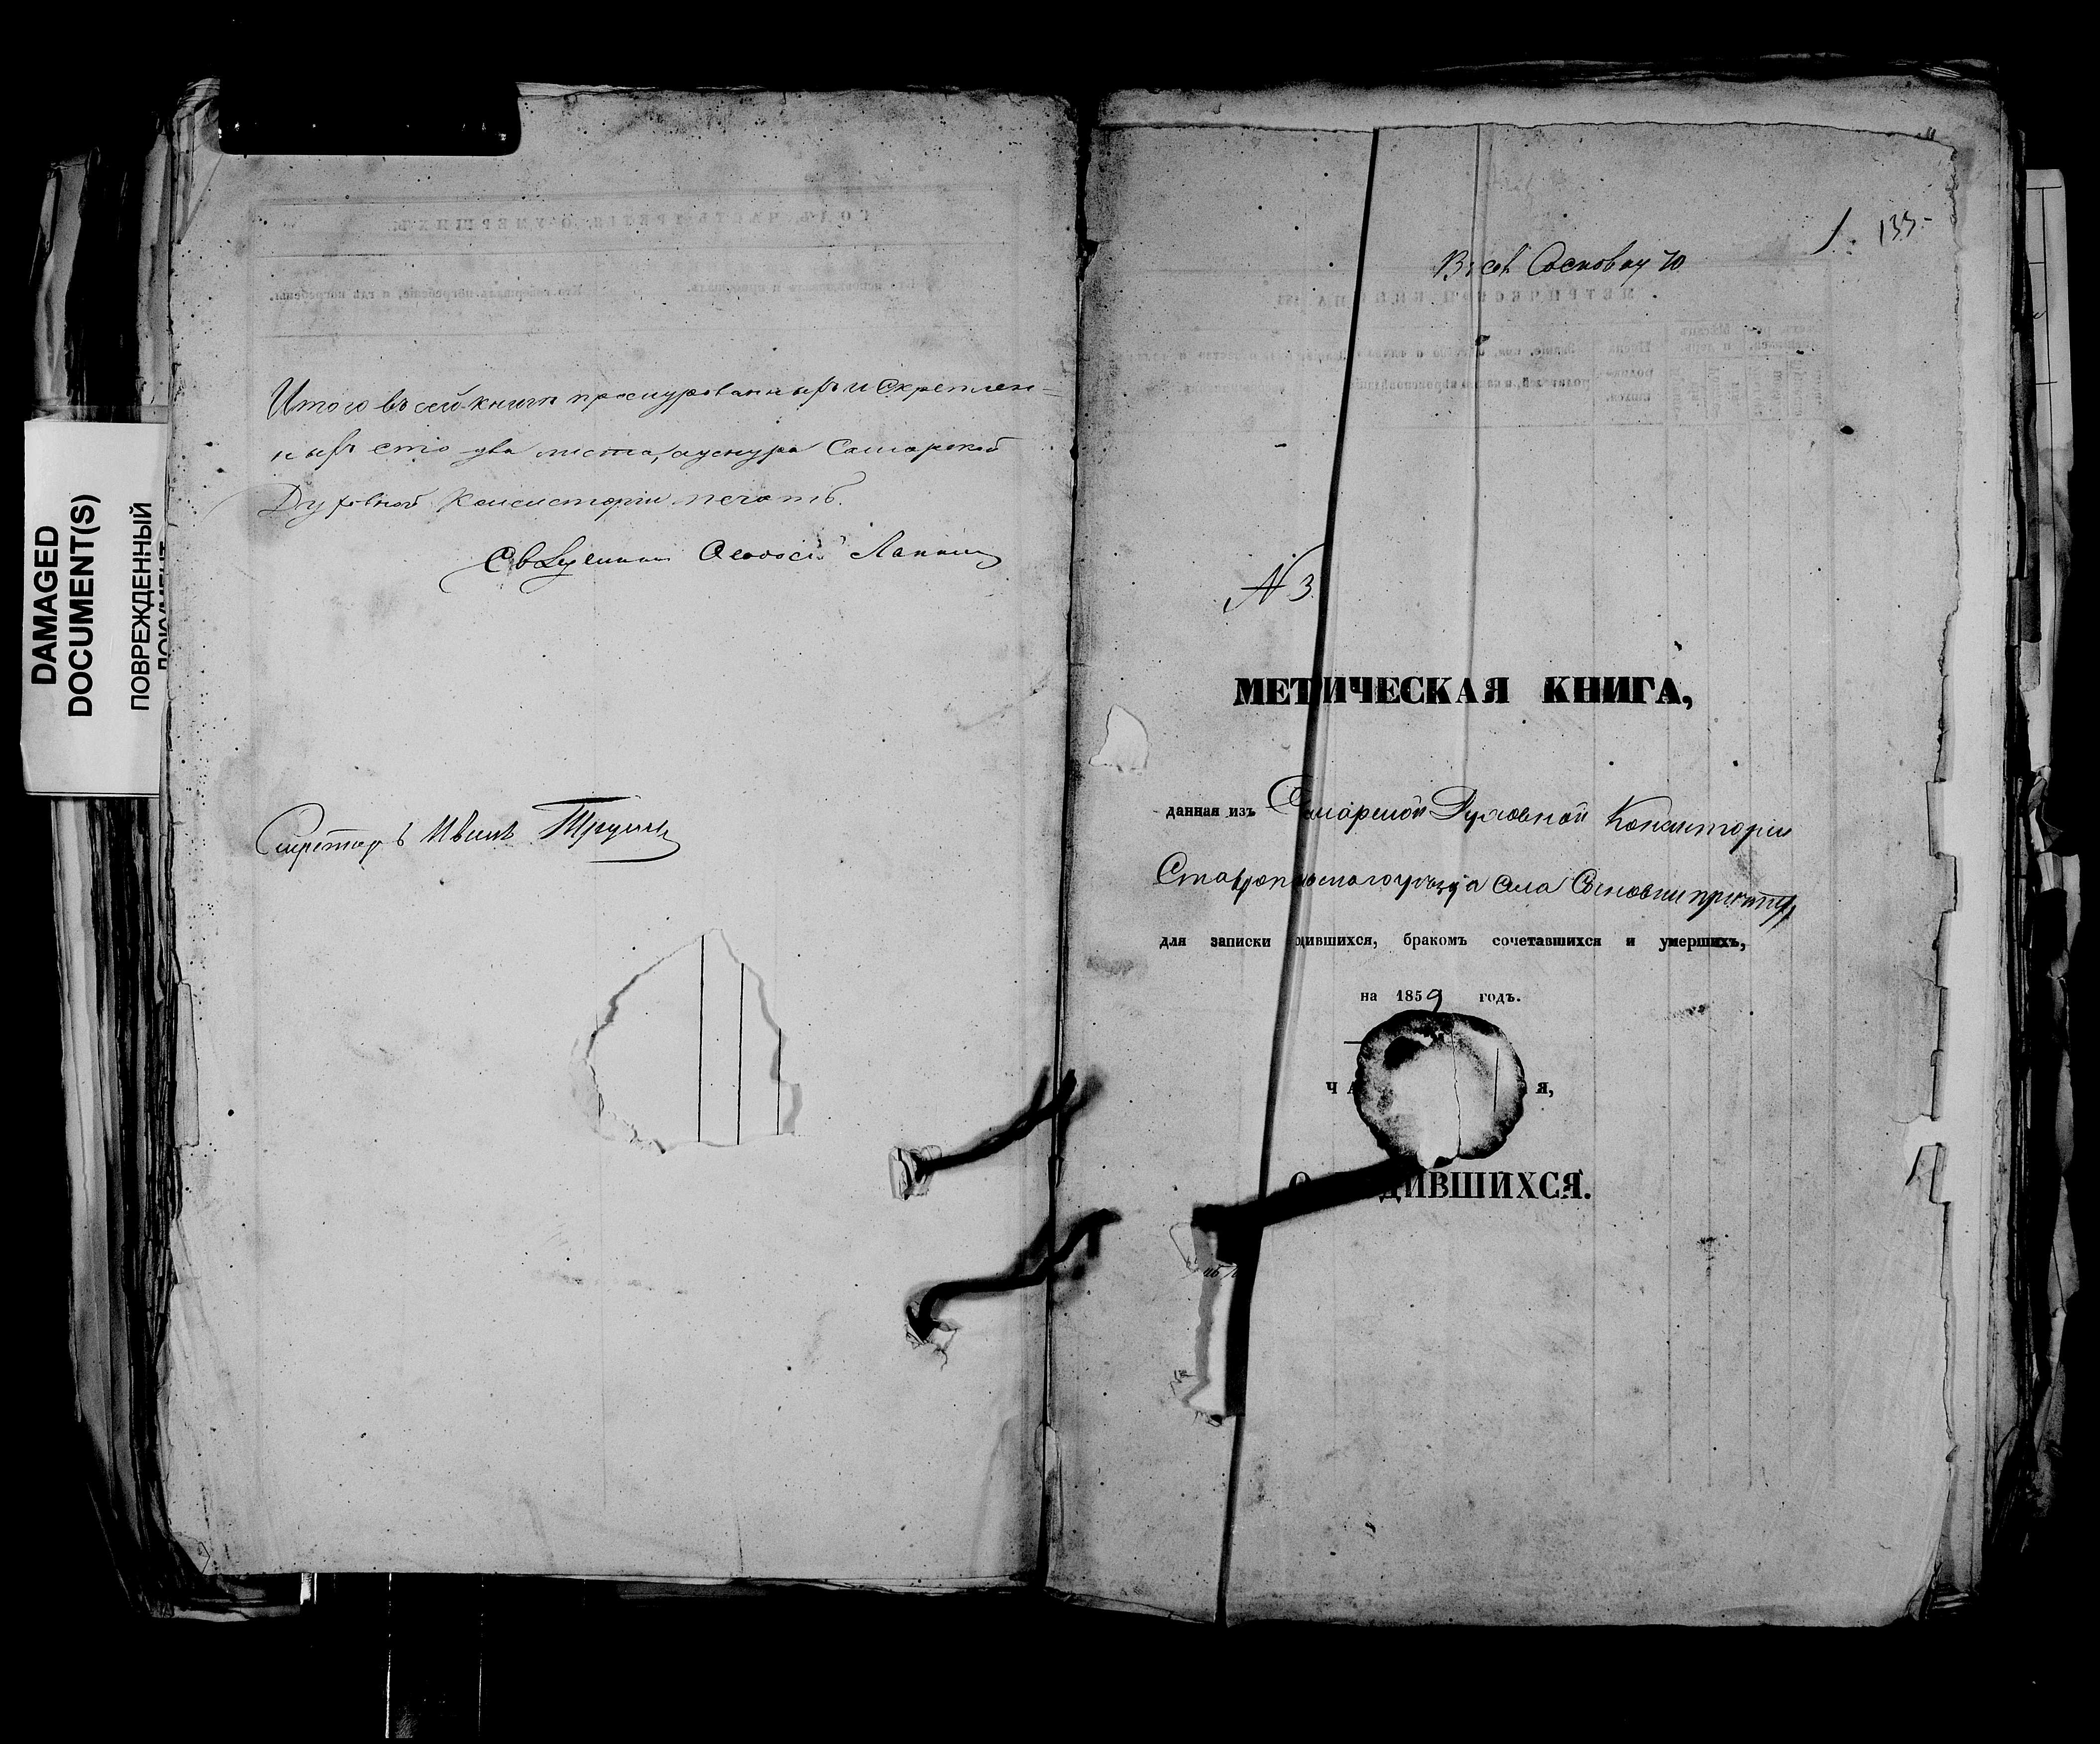 DAMAGED
DOCUMENT(S)
ПОВРЕЖДЕННЫЙ
Итого въ сей книги прошнурованныхъ и скреплен-
ныхъ сто два листа, ашнура Самарской
Духовной Консисторіи печать.
Священникъ
Секретарь Иванъ
1. 133
Въ село Сосновку
N 3
МЕТ ИЧЕСКАЯ КНИГА,
данная изъ Самарской Духовной Консисторіи
Ставропольскаго уѣзда села Сосновки причту
для записки дившихся, бракомъ сочетавшихся и умершихъ,
на 1859 годъ.
ЧА Я,
О ДИВШИХСЯ.